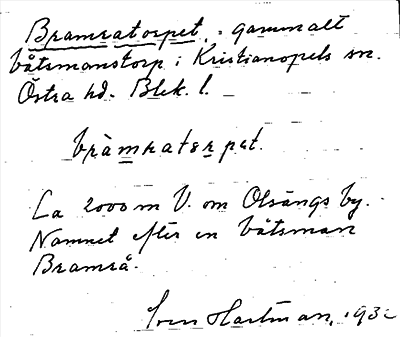 Bramratorpet, gammalt
båtsmanstorp i Kristianopels sn.
Östra hd. Blek. l.
bràmratorpet.
Ca 2000 m V. om Olsängs by.
Namnet efter en båtsman
Bramrå.
Sven Hartman, 193